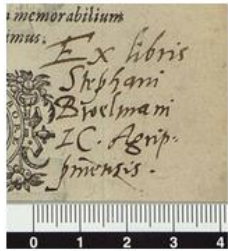 memorabilium
imus.
Ex libris
Stephani
Broelmani
IC. Agrip-
pinensis.
0 1 2 3 4